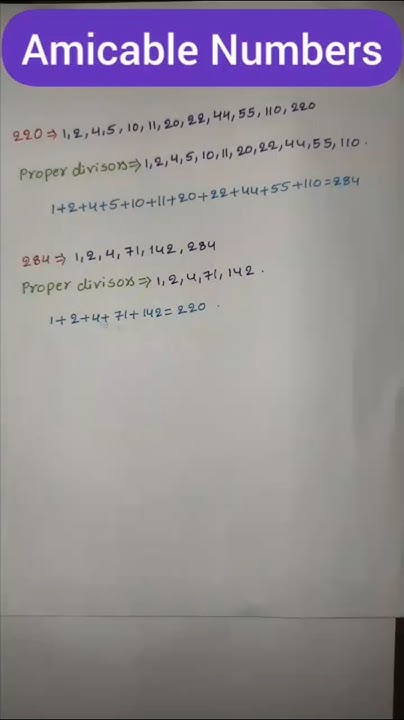 Amicable Numbers
220 ⇒ 1, 2, 4, 5, 10, 11, 20, 22, 44, 55, 110, 220
Proper divisors ⇒ 1, 2, 4, 5, 10, 11, 20, 22, 44, 55, 110.
1+2+4+5+10+11+20+22+44+55+110=284
284 ⇒ 1, 2, 4, 71, 142, 284
Proper divisors ⇒ 1, 2, 4, 71, 142.
1+2+4+71+142=220.